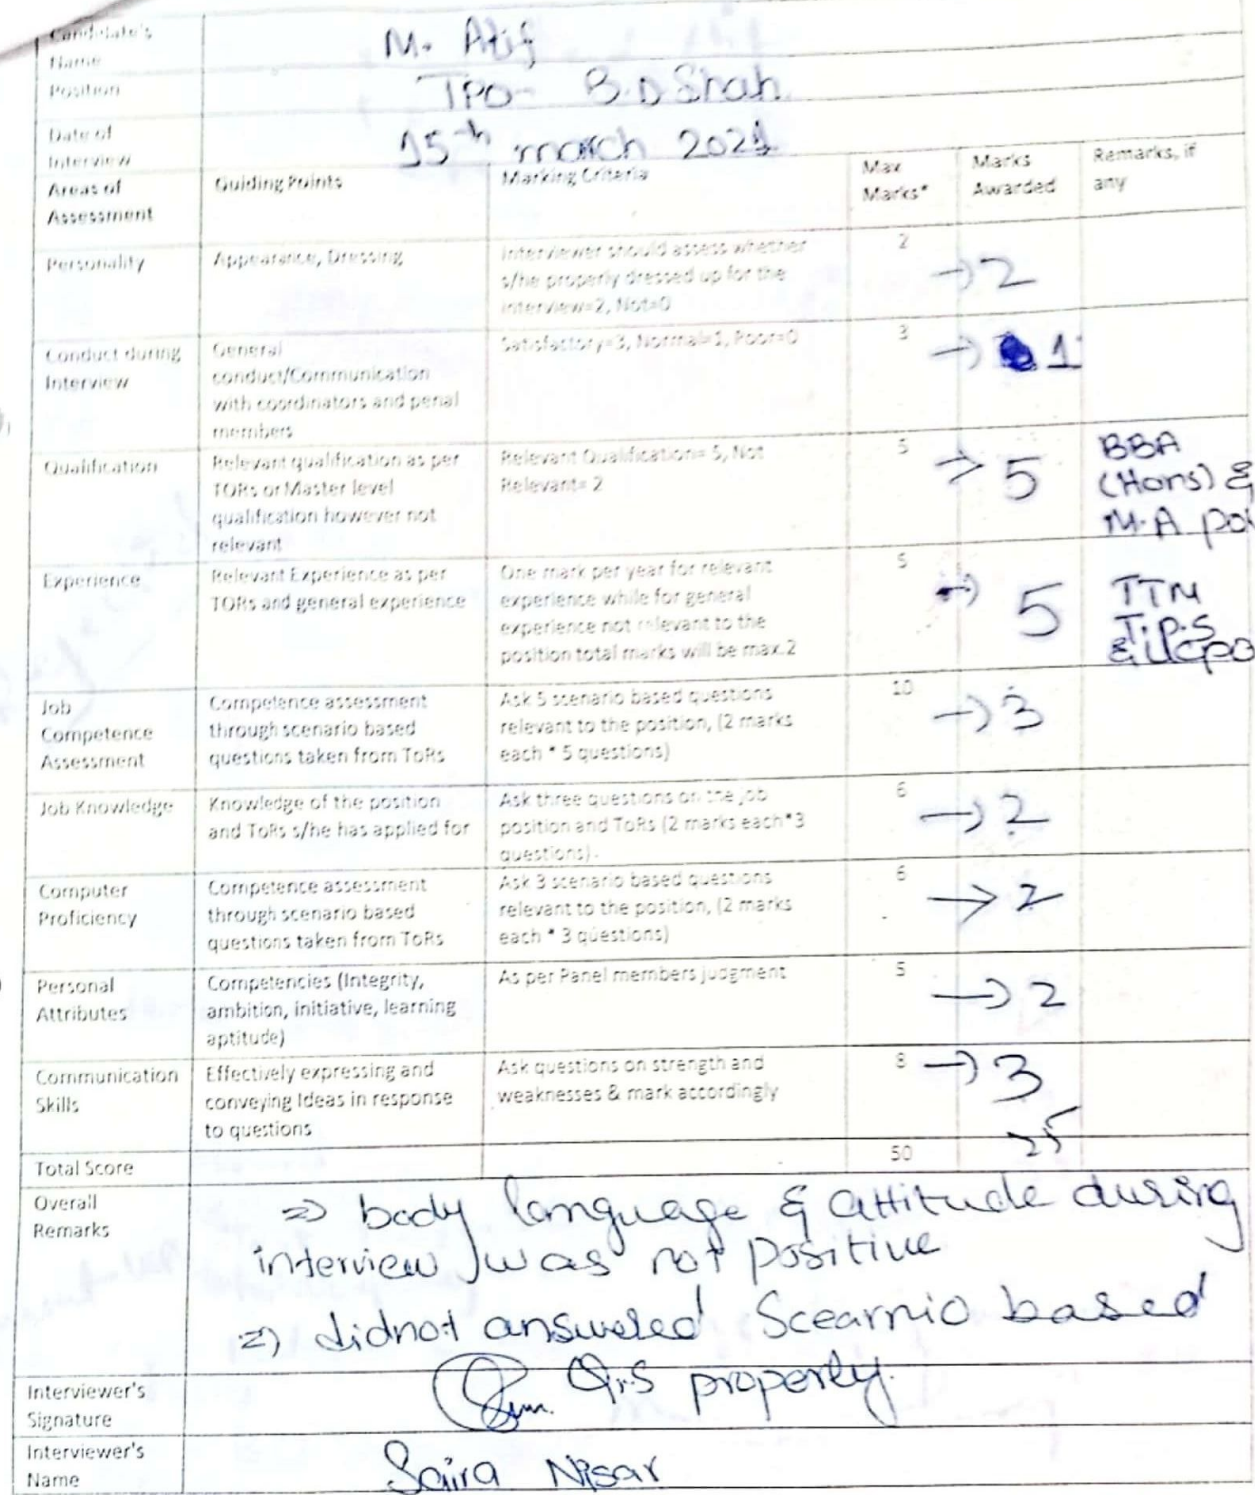 Candidate's
Name
M. Atif
Position
TPO- B.D Shah
Date of
Interview
15th march 2021
Areas of
Assessment
Guiding Points
Marking Criteria
Max
Marks*
Marks
Awarded
Remarks, if
any
Personality
Appearance, Dressing
Interviewer should assess whether
s/he properly dressed up for the
interview=2, Not=0
2
→ 2
Conduct during
Interview
General
conduct/Communication
with coordinators and penal
members
Satisfactory=3, Normal=1, Poor=0
3
→ 1
Qualification
Relevant qualification as per
TORs or Master level
qualification however not
relevant
Relevant Qualification= 5, Not
Relevant= 2
5
→ 5
BBA
(Hons) &
M.A pol
Experience
Relevant Experience as per
TORs and general experience
One mark per year for relevant
experience while for general
experience not relevant to the
position total marks will be max.2
5
→ 5
TTM
T.P.S
& UCPO
Job
Competence
Assessment
Competence assessment
through scenario based
questions taken from ToRs
Ask 5 scenario based questions
relevant to the position, (2 marks
each * 5 questions)
10
→ 3
Job Knowledge
Knowledge of the position
and ToRs s/he has applied for
Ask three questions on the job
position and ToRs (2 marks each*3
questions).
6
→ 2
Computer
Proficiency
Competence assessment
through scenario based
questions taken from ToRs
Ask 3 scenario based questions
relevant to the position, (2 marks
each * 3 questions)
6
→ 2
Personal
Attributes
Competencies (Integrity,
ambition, initiative, learning
aptitude)
As per Panel members judgment
5
→ 2
Communication
Skills
Effectively expressing and
conveying Ideas in response
to questions
Ask questions on strength and
weaknesses & mark accordingly
8
→ 3
Total Score
50
25
Overall
Remarks
⇒ body language & attitude during
interview was not positive
⇒ didnot answered Scearnio based
Q.S properly.
Interviewer's
Signature
Interviewer's
Name
Saira Nisar